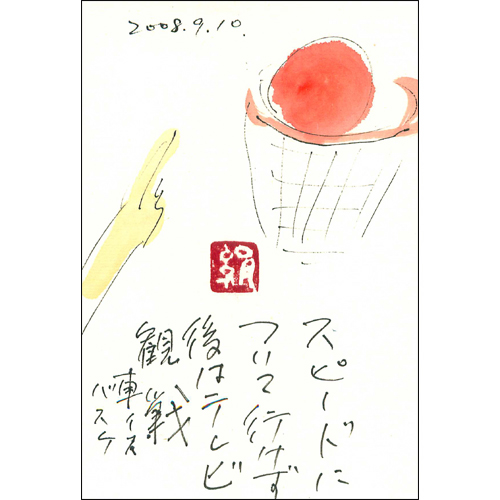 2008.9.10.
絹
スピードに
ついて行けず
後はテレビ
観戦
車イス
バスケ